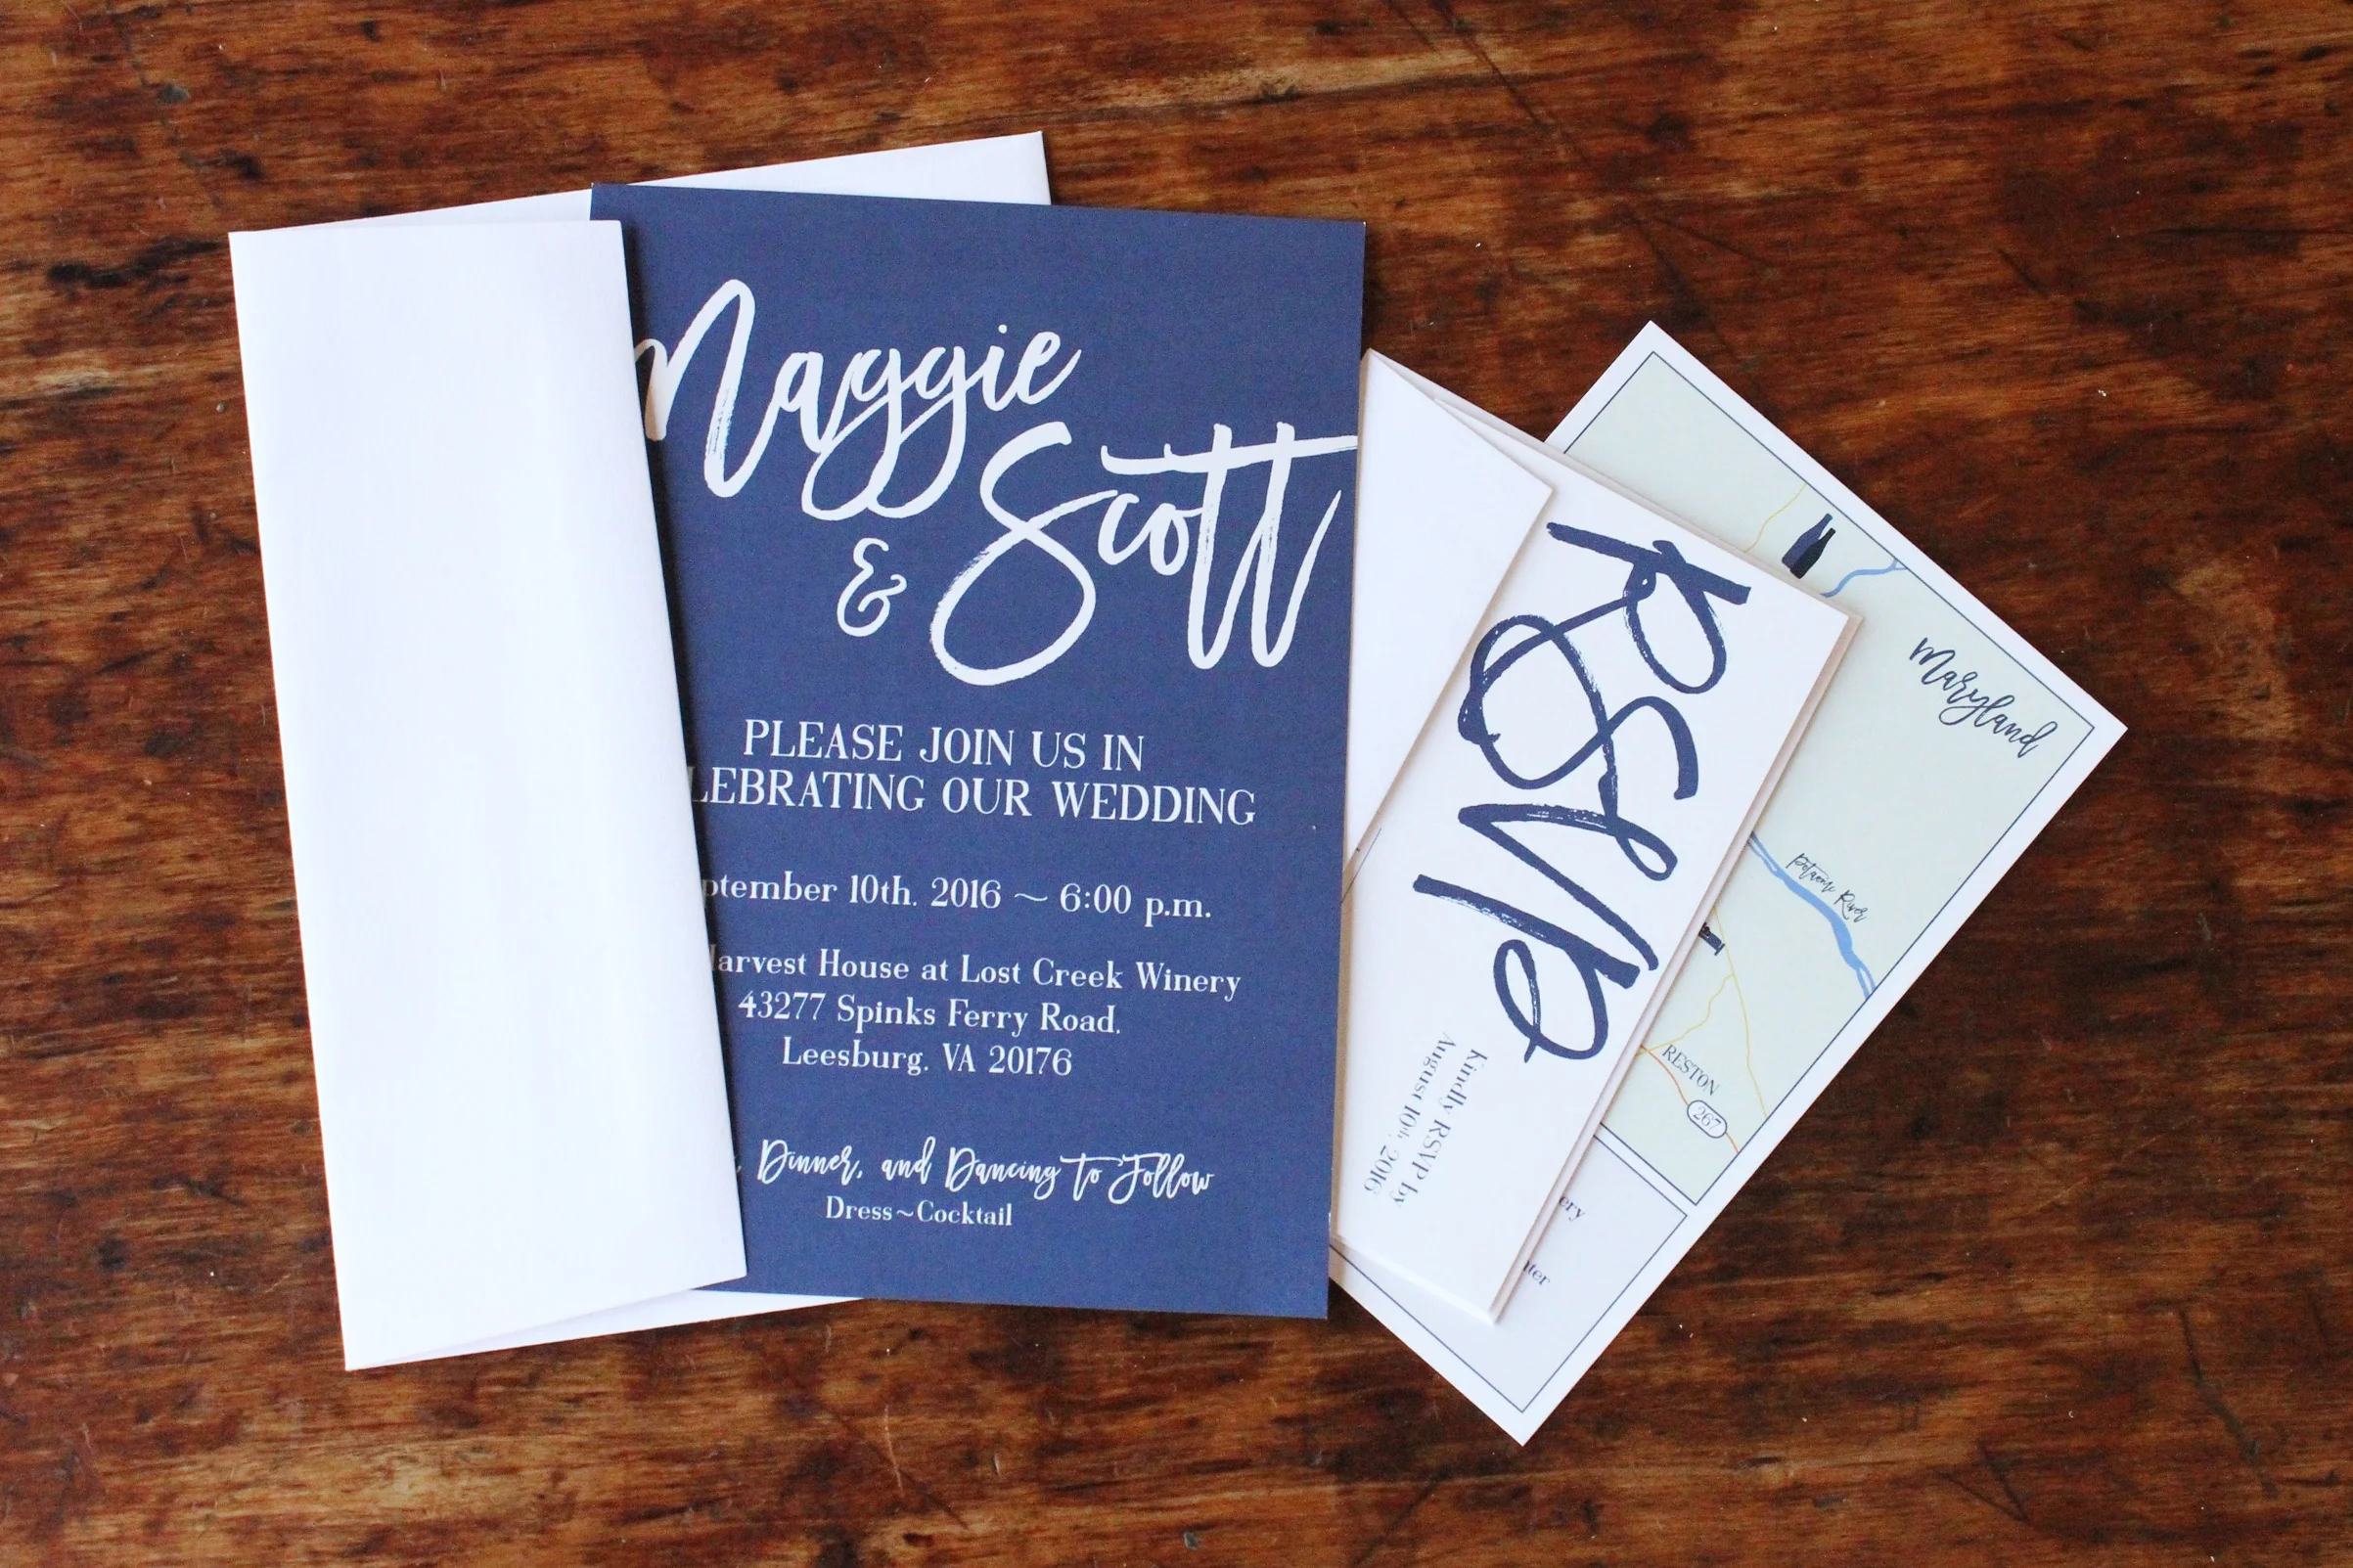 Maggie
& Scott
PLEASE JOIN US IN
LEBRATING OUR WEDDING
ptember 10th, 2016 ~ 6:00 p.m.
arvest House at Lost Creek Winery
43277 Spinks Ferry Road,
Leesburg, VA 20176
, Dinner, and Dancing to Follow
Dress~Cocktail
RSVP
Kindly RSVP by
August 10th, 2016
Maryland
Potomac River
RESTON
267
ery
ter